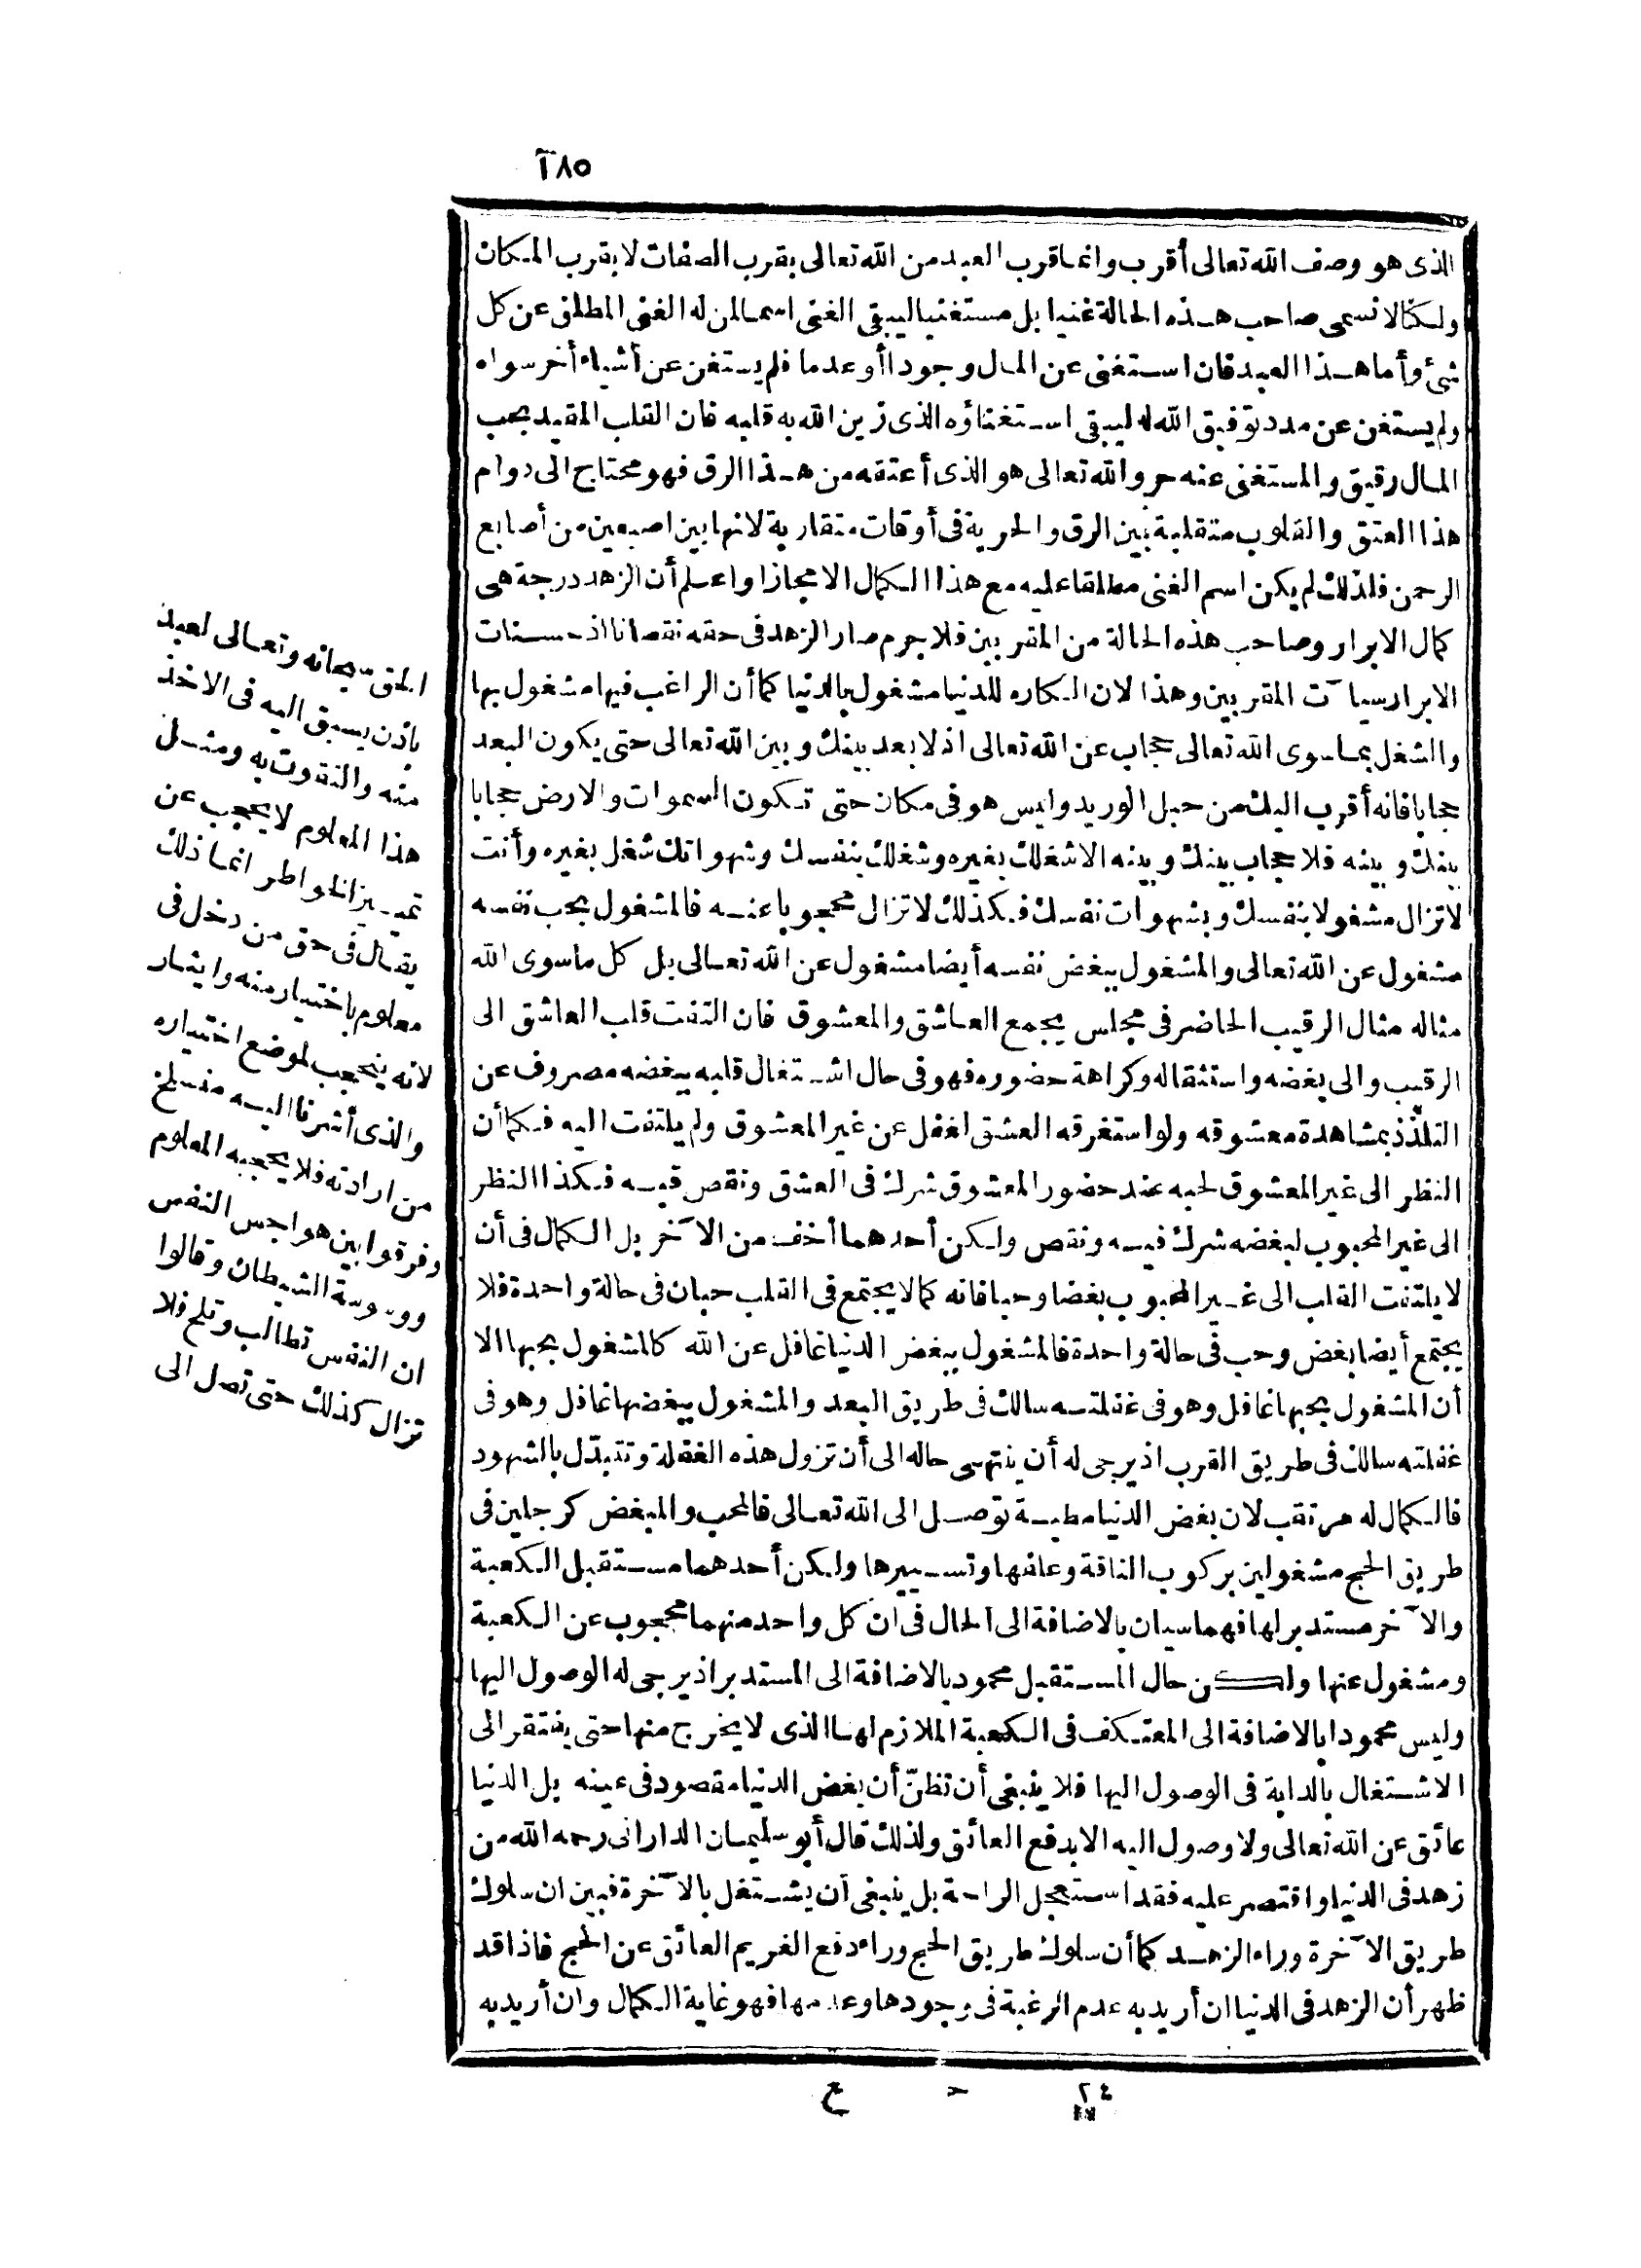 ١٨٥
الذى هو وصف الله تعالى أقرب وانما قرب العبد من الله تعالى بقرب الصفات لا بقرب المكان
ولكنا لا نسمى صاحب هذه الحالة غنيا بل مستغنيا ليبقى الغنى اسما لمن له الغنى المطلق عن كل
شئ وأما هذا العبد فان استغنى عن المال وجودا أو عدما فلم يستغن عن أشياء أخر سواه
ولم يستغن عن مدد توفيق الله له ليبقى استغناؤه الذى زين الله به قلبه فان القلب المقيد بحب
المال رقيق والمستغنى عنه حر والله تعالى هو الذى أعتقه من هذا الرق فهو محتاج الى دوام
هذا العتق والقلوب متقلبة بين الرق والحرية فى أوقات متقاربة لانها بين اصبعين من أصابع
الرحمن فلذلك لم يكن اسم الغنى مطلقا عليه مع هذا الكمال الا مجازا واعلم أن الزهد درجة هى
كمال الابرار وصاحب هذه الحالة من المقربين فلا جرم صار الزهد فى حقه نقصانا اذ حسنات
الابرار سيآت المقربين وهذا لان الكاره للدنيا مشغول بالدنيا كما أن الراغب فيها مشغول بها
والشغل بما سوى الله تعالى حجاب عن الله تعالى اذ لا بعد بينك وبين الله تعالى حتى يكون البعد
حجابا فانه أقرب اليك من حبل الوريد وليس هو فى مكان حتى تكون السموات والارض حجابا
بينك وبينه فلا حجاب بينك وبينه الا شغلك بغيره وشغلك بنفسك وشهواتك شغل بغيره وأنت
لا تزال مشغولا بنفسك وبشهوات نفسك فكذلك لا تزال محجوبا عنه فالمشغول بحب نفسه
مشغول عن الله تعالى والمشغول ببغض نفسه أيضا مشغول عن الله تعالى بل كل ما سوى الله
مثاله مثال الرقيب الحاضر فى مجلس يجمع العاشق والمعشوق فان التفت قلب العاشق الى
الرقيب والى بغضه واستثقاله وكراهة حضوره فهو فى حال اشتغال قلبه ببغضه مصروف عن
التلذذ بمشاهدة معشوقه ولو استغرقه العشق لغفل عن غير المعشوق ولم يلتفت اليه فكما أن
النظر الى غير المعشوق لحبه عند حضور المعشوق شرك فى العشق ونقص فيه فكذا النظر
الى غير المحبوب لبغضه شرك فيه ونقص ولكن أحدهما أخف من الآخر بل الكمال فى أن
لا يلتفت القلب الى غير المحبوب بغضا وحبا فانه كما لا يجتمع فى القلب حبان فى حالة واحدة فلا
يجتمع أيضا بغض وحب فى حالة واحدة فالمشغول ببغض الدنيا غافل عن الله كالمشغول بحبها الا
أن المشغول بحبها غافل وهو فى غفلته سالك فى طريق البعد والمشغول ببغضها غافل وهو فى
غفلته سالك فى طريق القرب اذ يرجى له أن ينتهى حاله الى أن تزول هذه الغفلة وتتبدّل بالشهود
فالكمال له مرتقب لان بغض الدنيا مطية توصل الى الله تعالى فالمحب والمبغض كرجلين فى
طريق الحج مشغولين بركوب الناقة وعلفها وتسييرها ولكن أحدهما مستقبل الكعبة
والآخر مستدبر لها فهما سيان بالاضافة الى الحال فى ان كل واحد منهما محجوب عن الكعبة
ومشغول عنها ولكن حال المستقبل محمود بالاضافة الى المستدبر اذ يرجى له الوصول اليها
وليس محمودا بالاضافة الى المعتكف فى الكعبة الملازم لها الذى لا يخرج منها حتى يفتقر الى
الاشتغال بالدابة فى الوصول اليها فلا ينبغى أن تظنّ أن بغض الدنيا مقصود فى عينه بل الدنيا
عائق عن الله تعالى ولا وصول اليه الا بدفع العائق ولذلك قال أبو سليمان الدارانى رحمه الله من
زهد فى الدنيا واقتصر عليه فقد استعجل الراحة بل ينبغى أن يشتغل بالآخرة فبين ان سلوك
طريق الآخرة وراء الزهد كما أن سلوك طريق الحج وراء دفع الغريم العائق عن الحج فاذا قد
ظهر أن الزهد فى الدنيا ان أريد به عدم الرغبة فى وجودها وعدمها فهو غاية الكمال وان أريد به
الحق سبحانه وتعالى لعبد
باذن يسبق اليه فى الاخذ
منه والتقوت به ومثل
هذا المعلوم لا يحجب عن
تمييز الخواطر انما ذلك
يقال فى حق من دخل فى
معلوم باختيار منه وايثار
لانه ينحجب لموضع اختياره
والذى أشرنا اليه منسلخ
من ارادته فلا يحجبه المعلوم
وفرقوا بين هواجس النفس
ووسوسة الشيطان وقالوا
ان النفس تطالب وتلح فلا
تزال كذلك حتى تصل الى
٢٤ ح ع